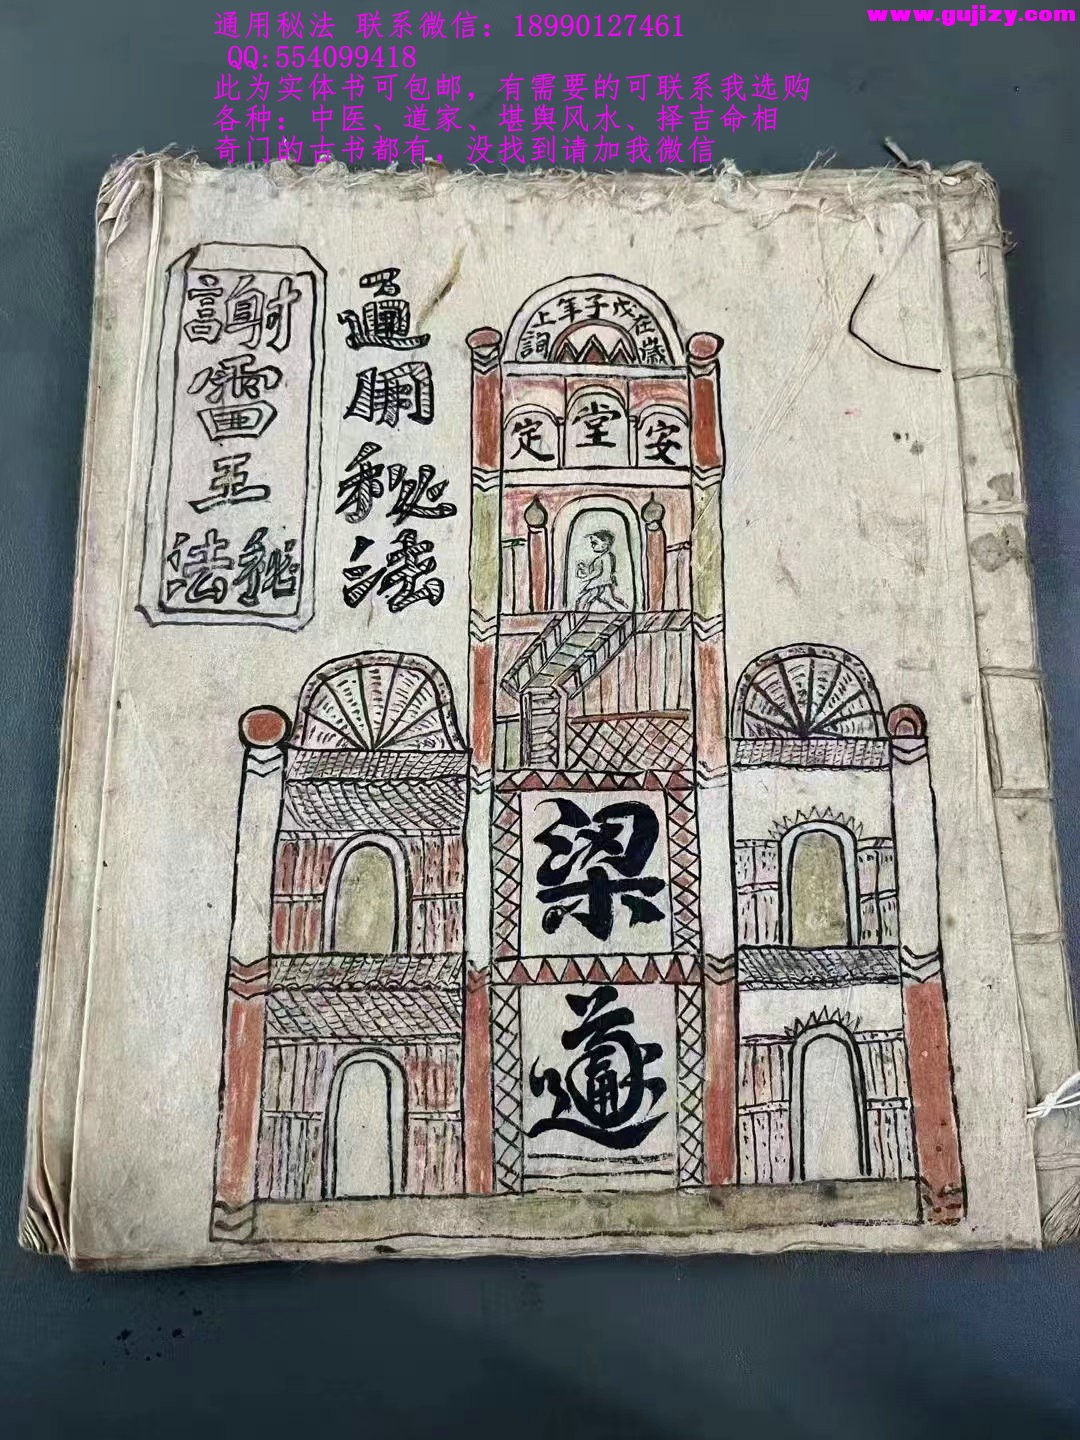 通用秘法 联系微信：18990127461
www.gujizy.com
QQ:554099418
此为实体书可包邮，有需要的可联系我选购
各种：中医、道家、堪舆风水、择吉命相
奇门的古书都有，没找到请加我微信
歲在戊子年上詞
安堂定
通用秘法
謝雷王秘法
梁